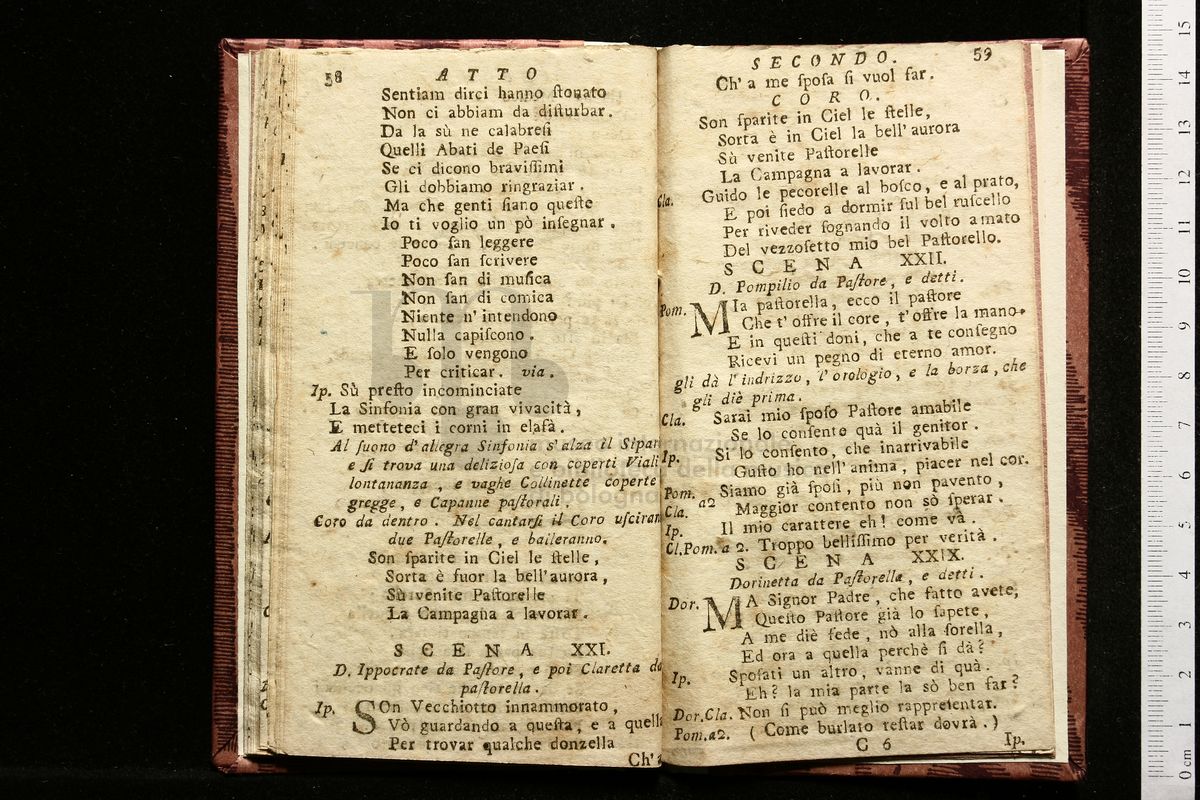 58 ATTO
Sentiam dirci hanno ſtonato
Non ci abbiam da diſturbar.
Da la sù ne calabreſi
Quelli Abati de Paeſi
Se ci dicono braviſſimi
Gli dobbiamo ringraziar.
Ma che genti ſiano queſte
Io ti voglio un pò inſegnar.
Poco ſan leggere
Poco ſan ſcrivere
Non ſan di muſica
Non ſan di comica
Niente n' intendono
Nulla capiſcono.
E ſolo vengono
Per criticar. via.
Ip. Sù preſto incominciate
La Sinfonia con gran vivacità,
E metteteci i corni in elafà.
Al ſuono d'allegra Sinfonia s'alza il Sipar
e ſi trova una delizioſa con coperti Viali
lontananza, e vaghe Collinette coperte
gregge, e Capanne paſtorali.
Coro da dentro. Nel cantarſi il Coro uſciran
due Paſtorelle, e balleranno.
Son ſparite in Ciel le ſtelle,
Sorta è fuor la bell'aurora,
Sù venite Paſtorelle
La Campagna a lavorar.
SCENA XXI.
D. Ippocrate da Paſtore, e poi Claretta da
paſtorella.
Ip. SOn Vecchiotto innammorato,
Vò guardando a queſta, e a quella
Per trovar qualche donzella
Ch' a
SECONDO. 59
Ch' a me ſpoſa ſi vuol far.
CORO.
Son ſparite in Ciel le ſtelle,
Sorta è in Ciel la bell'aurora
Sù venite Paſtorelle
La Campagna a lavorar.
Cla. Guido le pecorelle al boſco, e al prato,
E poi ſiedo a dormir ſul bel ruſcello
Per riveder ſognando il volto amato
Del vezzoſetto mio bel Paſtorello.
SCENA XXII.
D. Pompilio da Paſtore, e detti.
Pom. MIa paſtorella, ecco il paſtore
Che t' offre il core, t'offre la mano.
E in queſti doni, che a te conſegno
Ricevi un pegno di eterno amor.
gli dà l'indrizzo, l'orologio, e la borza, che
gli diè prima.
Cla. Sarai mio ſpoſo Paſtore amabile
Se lo conſente quà il genitor.
Ip. Sì lo conſento, che inarrivabile
Guſto ho nell'anima, piacer nel cor.
Pom. Cla. a2 Siamo già ſpoſi, più non pavento,
Maggior contento non sò ſperar.
Ip. Il mio carattere eh! come và.
Cl.Pom. a 2. Troppo belliſſimo per verità.
SCENA XXIX.
Dorinetta da Paſtorella, e detti.
Dor. MA Signor Padre, che fatto avete,
Queſto Paſtore già lo ſapete,
A me diè fede, nò alla ſorella,
Ed ora a quella perchè ſi dà?
Ip. Spoſati un altro, vanne di quà.
Eh? la mia parte la sò ben far?
Dor.Cla. Non ſi può meglio rappreſentar.
Pom.a2. (Come burlato reſtar dovrà.)
C 6 Ip.
15
14
13
12
11
10
9
8
7
6
5
4
3
2
1
0 cm